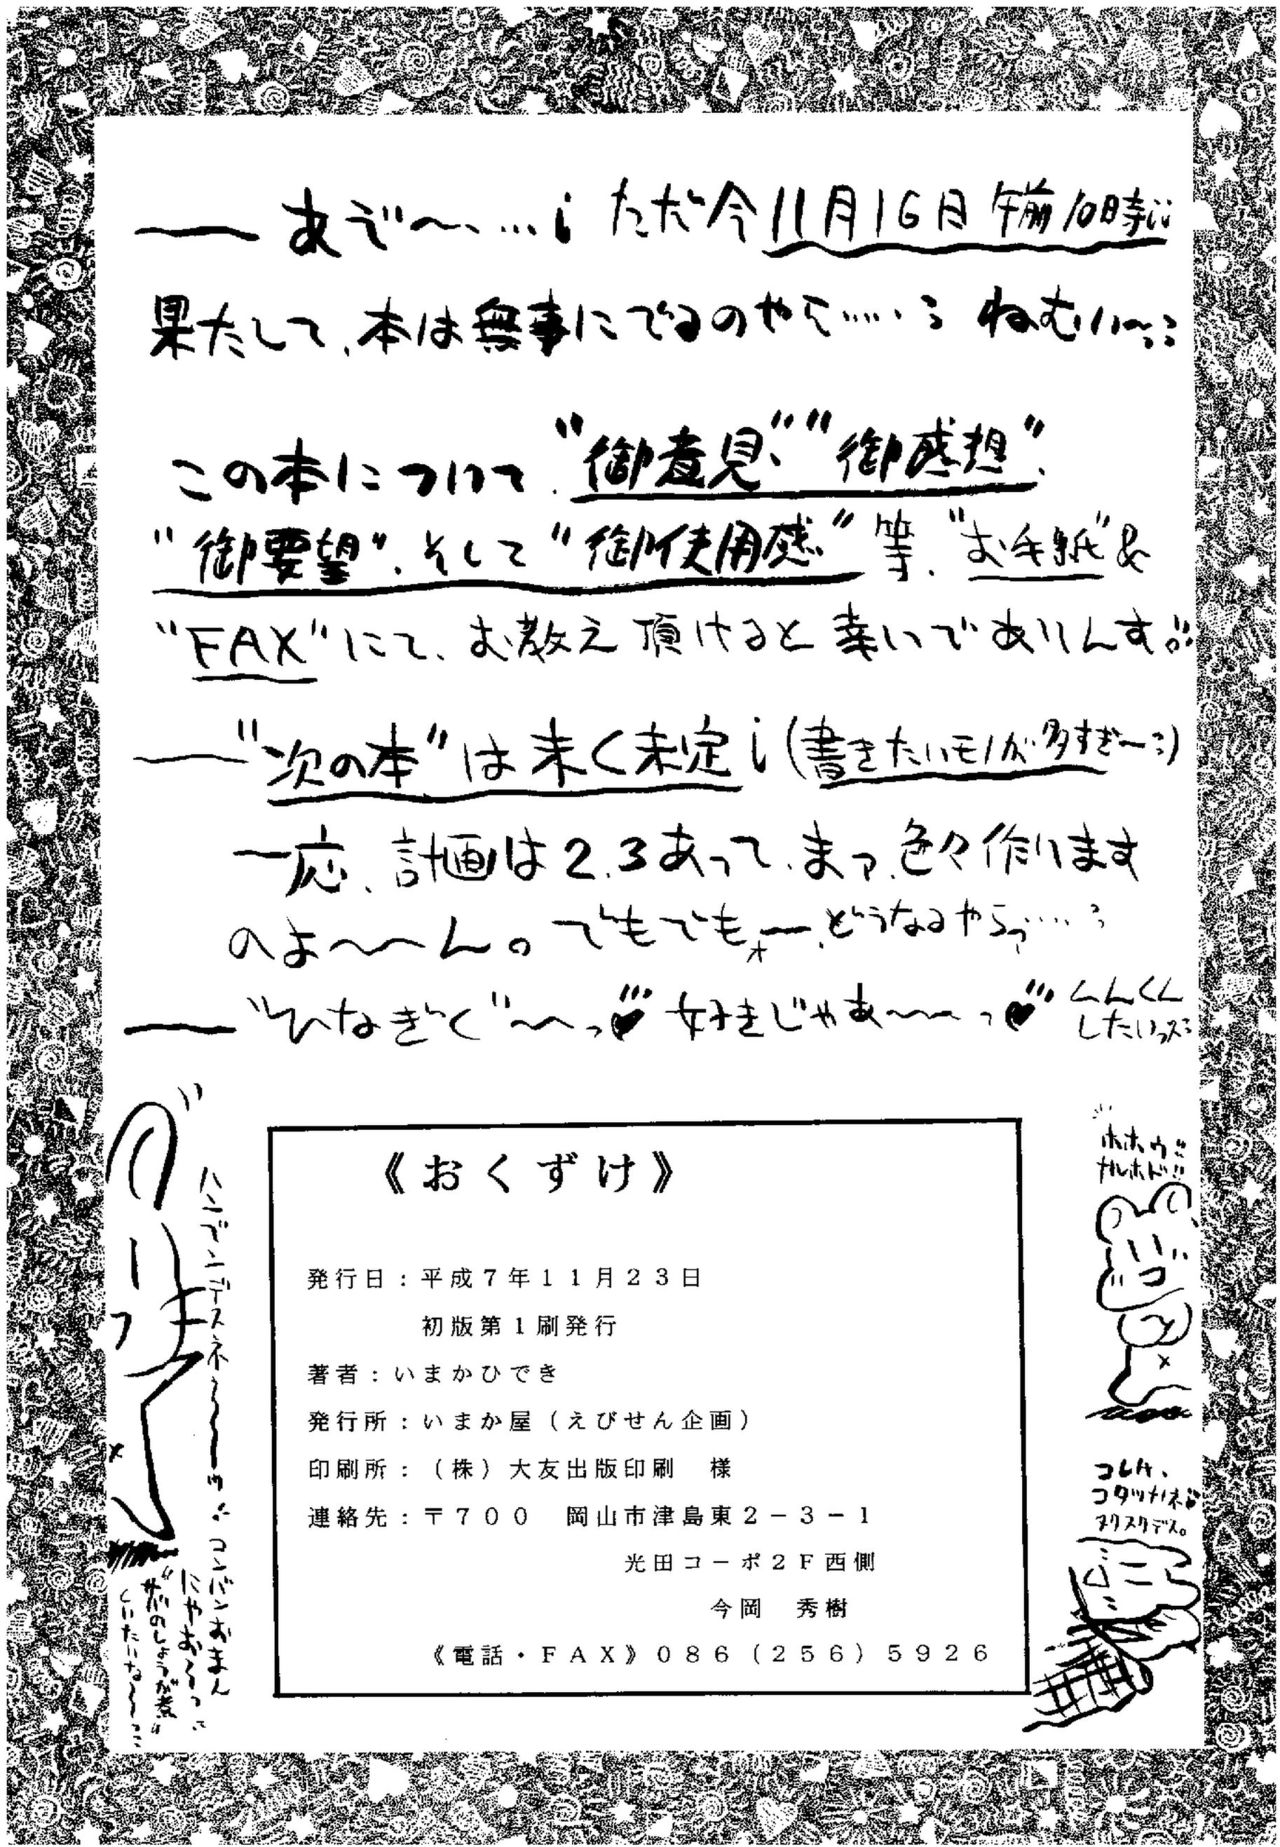 ── あぞ〜、…! ただ今11月16日午前10時!!
果たして、本は無事にでるのやら……? ねむい〜??
この本について、"御意見"、"御感想"、
"御要望"、そして"御使用感"等、"お手紙"&
"FAX"にて、お教え頂けると幸いでありんす。
── "次の本"は未く未定!(書きたいモノが多すぎー?)
一応、計画は2、3あって、まァ、色々作ります
のよ〜〜ん。でもでもォー、どうなるやらァ……?
── "ひなぎく"〜〜っ♥ 好きじゃあ〜〜っ♥ くんくん
したいっス
《おくずけ》
発行日：平成7年11月23日
初版第1刷発行
著者：いまかひでき
発行所：いまか屋（えびせん企画）
印刷所：（株）大友出版印刷　様
連絡先：〒700　岡山市津島東2－3－1
光田コーポ2F西側
今岡　秀樹
《電話・FAX》086（256）5926
ホホウ!!
ナルホド!!
コレハ、
コタツカネ
ヌクヌクデス。
コンバンおまん
にゃお〜っ
しょうが煮"